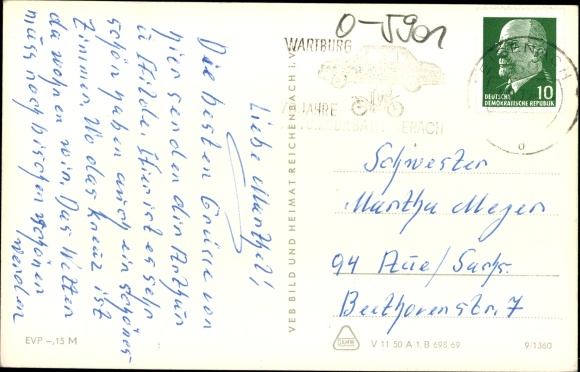 Liebe Marthel!
Die besten Grüsse von
hier senden dir Arthur
u Hilde. Hier ist es sehr
schön haben auch ein schönes
Zimmer. Wo das Kreuz ist
da wohnen wir. Das Wetter
muss noch bischen schöner
werden
EVP -,15 M
VEB BILD UND HEIMAT REICHENBACH i. V.
0-5901
WARTBURG
JAHRE
ENACH
10
DEUTSCHE
DEMOKRATISCHE REPUBLIK
d
Schwester
Martha Meyer
94 Aue/Sachs.
Beethovenstr. 7
V 11 50 A 1, B 698/69
9/1360